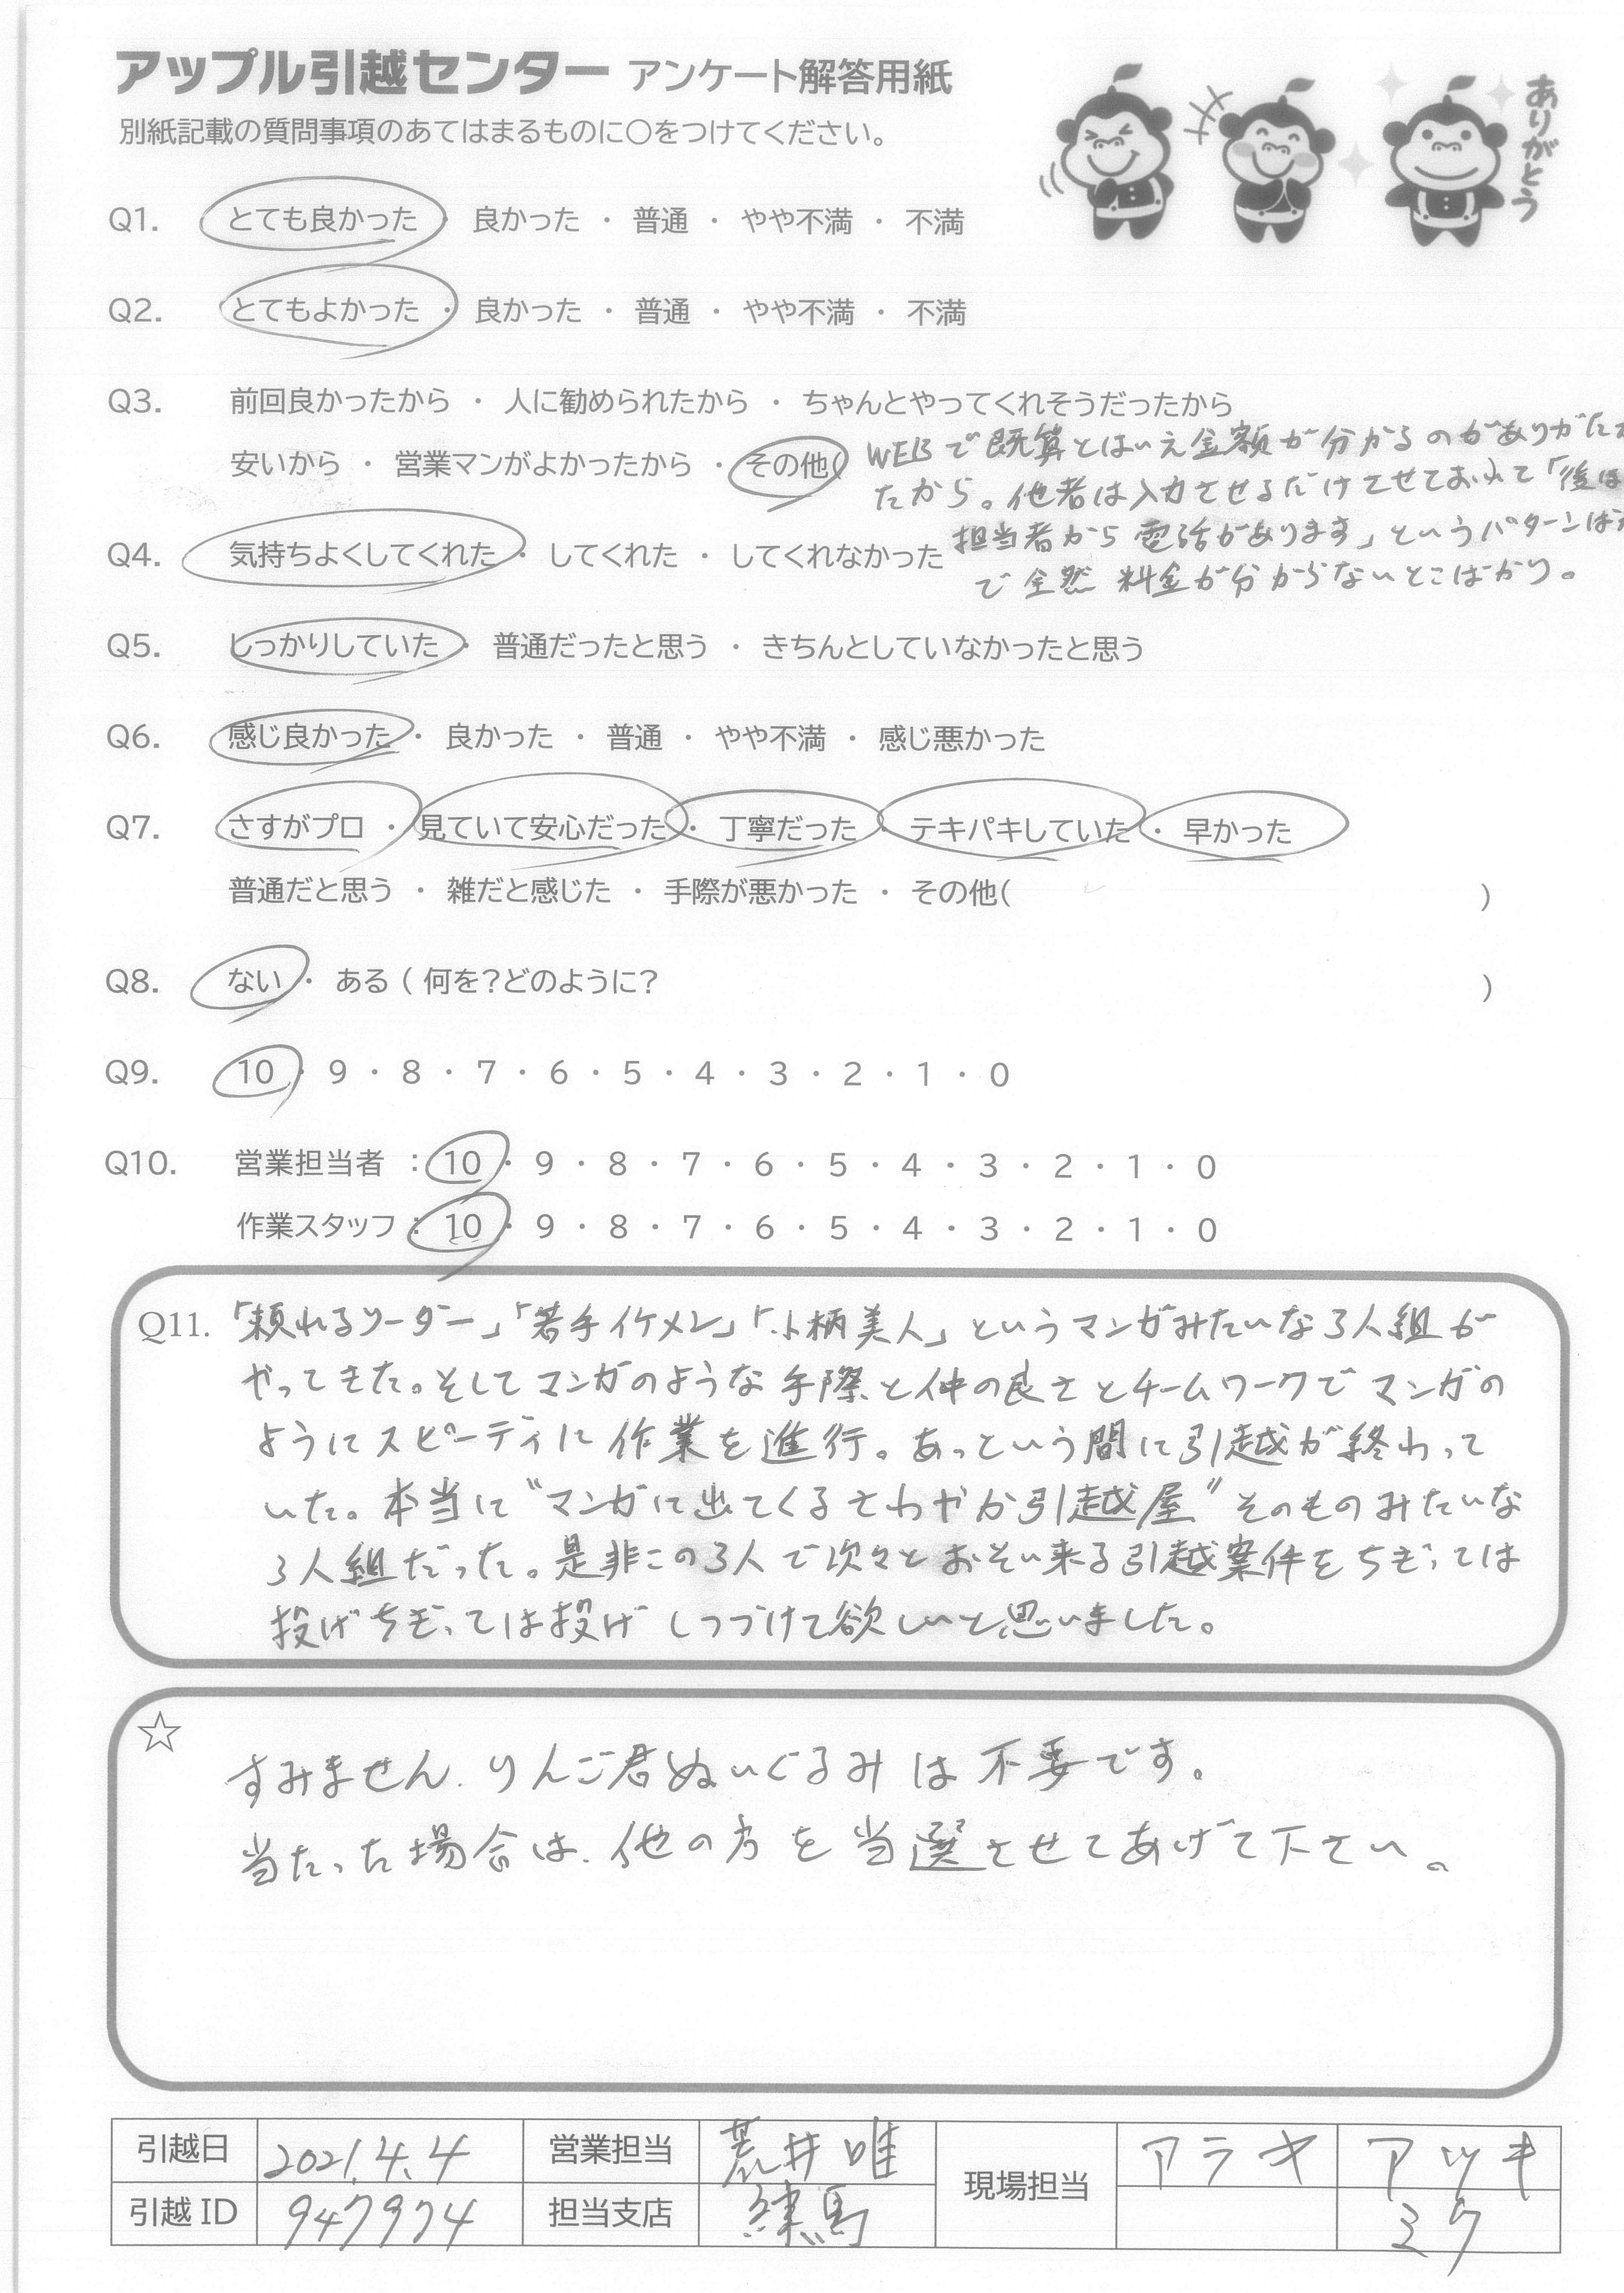 アップル引越センター アンケート解答用紙
別紙記載の質問事項のあてはまるものに〇をつけてください。
ありがとう
Q1. とても良かった ・ 良かった ・ 普通 ・ やや不満 ・ 不満
Q2. とてもよかった ・ 良かった ・ 普通 ・ やや不満 ・ 不満
Q3. 前回良かったから ・ 人に勧められたから ・ ちゃんとやってくれそうだったから
安いから ・ 営業マンがよかったから ・ その他(
WEBで既算とはいえ金額が分かるのがありがた
たから。他者は入力させるだけさせておいて「後ほ
担当者から電話があります」というパターンば
で全然料金が分からないとこばかり。
Q4. 気持ちよくしてくれた ・ してくれた ・ してくれなかった
Q5. しっかりしていた ・ 普通だったと思う ・ きちんとしていなかったと思う
Q6. 感じ良かった ・ 良かった ・ 普通 ・ やや不満 ・ 感じ悪かった
Q7. さすがプロ ・ 見ていて安心だった ・ 丁寧だった ・ テキパキしていた ・ 早かった
普通だと思う ・ 雑だと感じた ・ 手際が悪かった ・ その他( )
Q8. ない ・ ある ( 何を?どのように? )
Q9. 10 ・ 9 ・ 8 ・ 7 ・ 6 ・ 5 ・ 4 ・ 3 ・ 2 ・ 1 ・ 0
Q10. 営業担当者 : 10 ・ 9 ・ 8 ・ 7 ・ 6 ・ 5 ・ 4 ・ 3 ・ 2 ・ 1 ・ 0
作業スタッフ : 10 ・ 9 ・ 8 ・ 7 ・ 6 ・ 5 ・ 4 ・ 3 ・ 2 ・ 1 ・ 0
Q11. 「頼れるリーダー」「若手イケメン」「小柄美人」というマンガみたいな3人組が
やってきた。そしてマンガのような手際と仲の良さとチームワークでマンガの
ようにスピーディに作業を進行。あっという間に引越が終わって
いた。本当に“マンガに出てくるさわやか引越屋”そのものみたいな
3人組だった。是非この3人で次々とおそい来る引越案件をちぎっては
投げちぎっては投げしつづけて欲しいと思いました。
☆
すみません、りんご君ぬいぐるみは不要です。
当たった場合は、他の方を当選させてあげて下さい。
引越日 2021.4.4 営業担当 荒井 唯 現場担当 アラキ アツキ
引越 ID 947974 担当支店 練馬 ミク